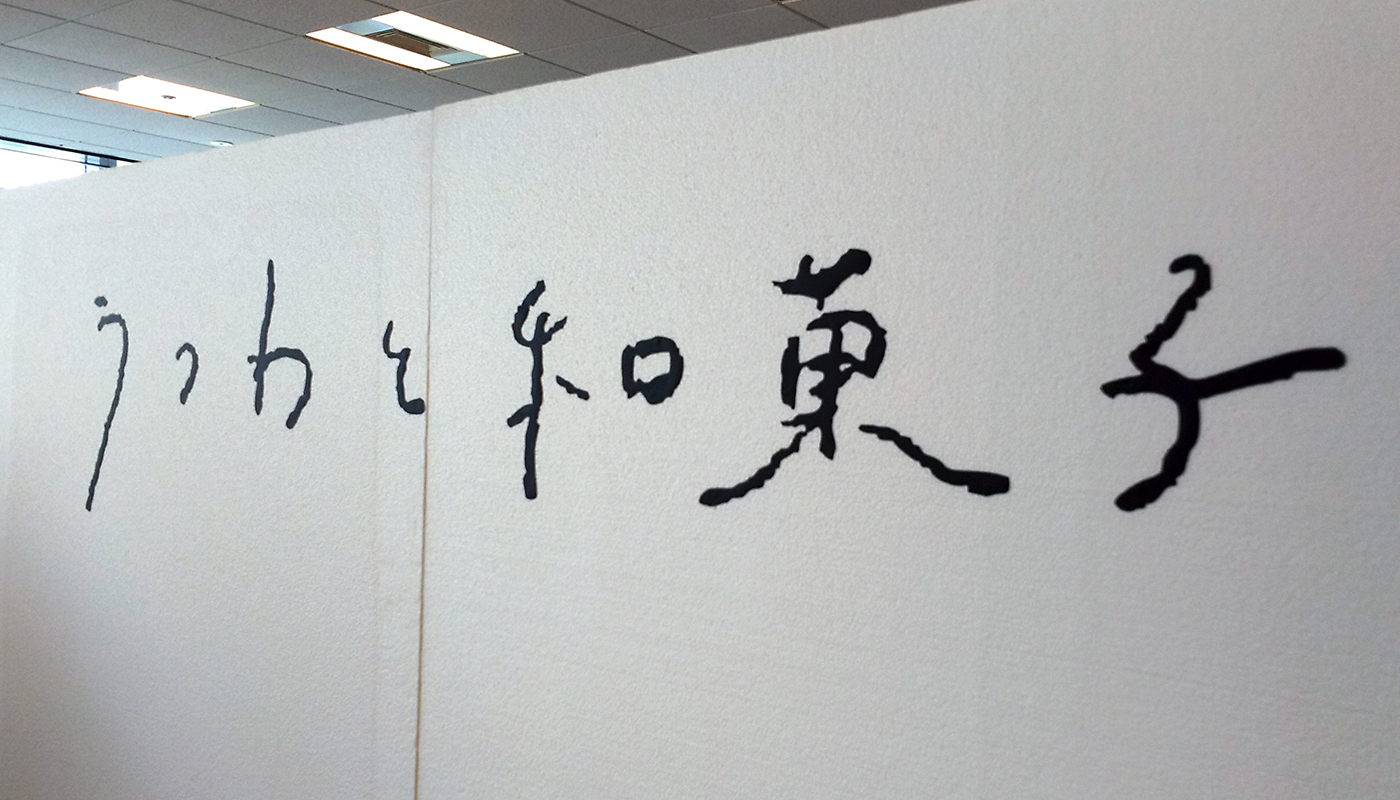 うつわと和菓子